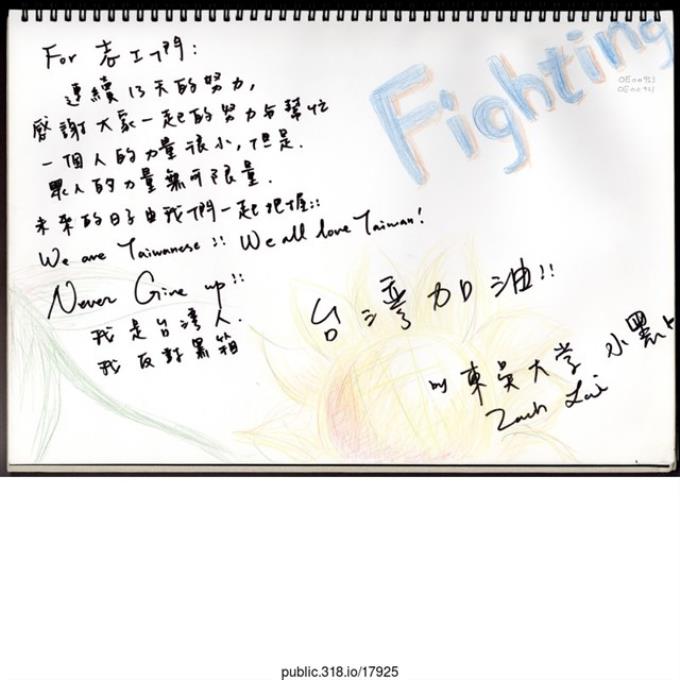 For 志工們:
連續13天的努力,
感謝大家一起的努力与幫忙
一個人的力量很小,但是.
眾人的力量無可限量.
未來的日子由我們一起把握!!
We are Taiwanese!! We all love Taiwan!
Never Give up!!
我是台灣人.
我反對黑箱
Fighting
台灣加油!!
by 東吳大学 小黑占
Zach Lai
public.318.io/17925